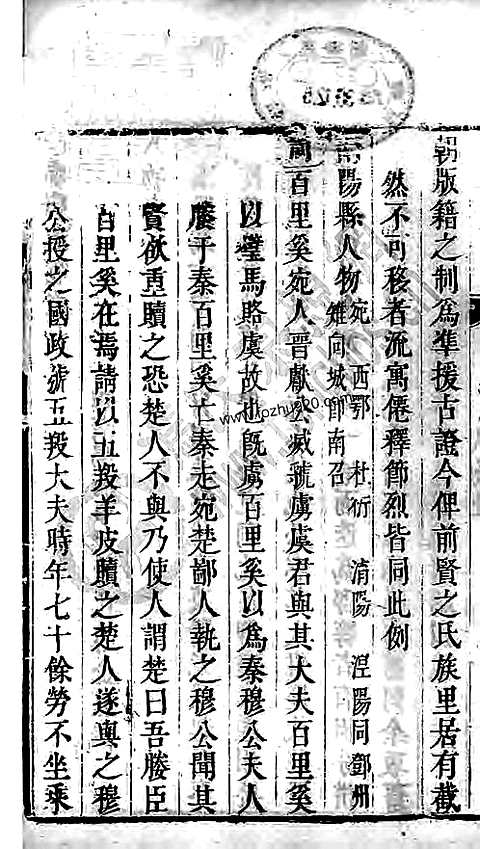 朝版籍之制為準援古證今俾前賢之氏族里居有截
然不可移者流寓僊釋節烈皆同此例
南陽縣人物宛 西鄂 杜衍 淯陽 涅陽同鄧州
雉向城即南召
周百里奚宛人晉獻公滅虢虜虞君與其大夫百里奚
以璧馬賂虞故也既虜百里奚以為秦穆公夫人
媵于秦百里奚亡秦走宛楚鄙人執之穆公聞其
賢欲重贖之恐楚人不與乃使人謂楚曰吾媵臣
百里奚在焉請以五羖羊皮贖之楚人遂與之穆
公授之國政號五羖大夫時年七十餘勞不坐乘